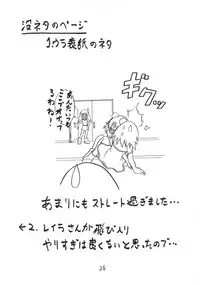 没ネタのページ
1.ウラ表紙のネタ
ギクッ
あんたいつも
ここでオチて
るわね!
あまりにもストレート過ぎました…
←2.レイラさんが飛び入り
やりすぎは良くないと思ったので…